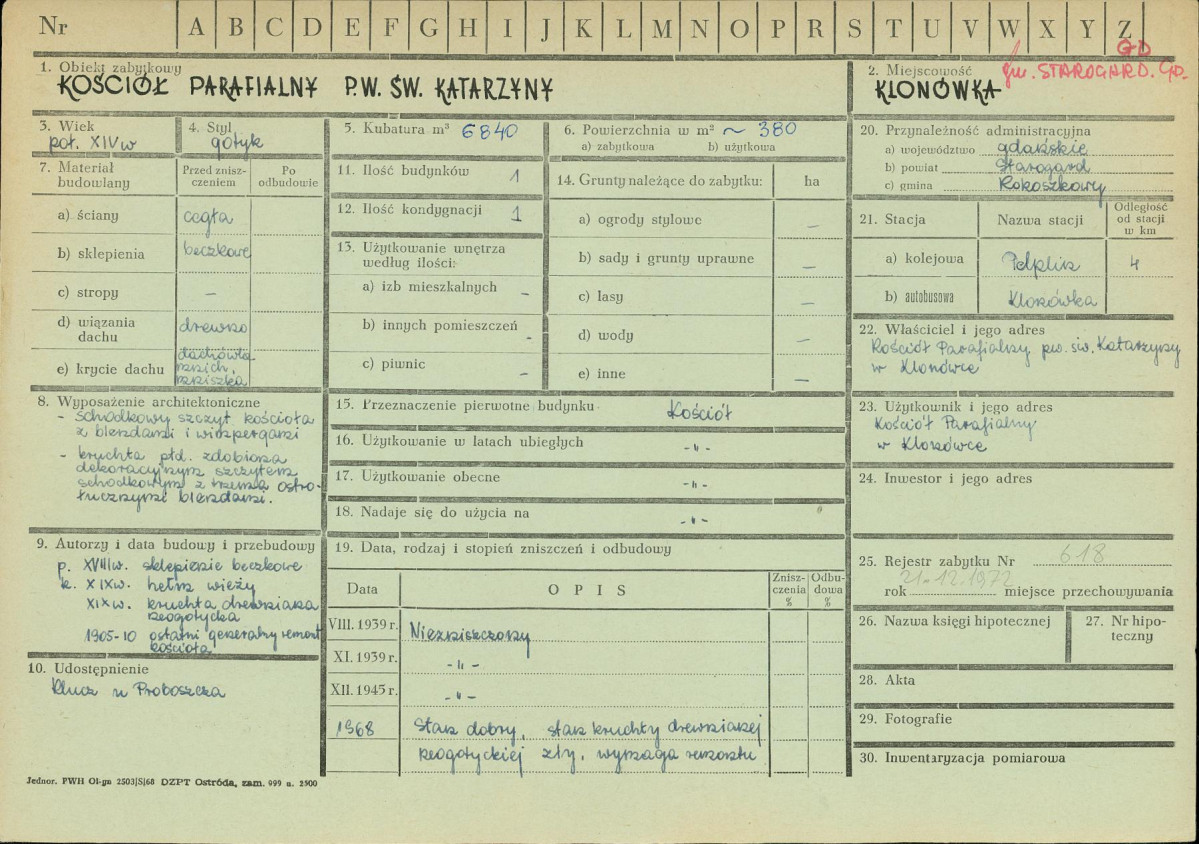 Nr A B C D E F G H I J K L M N O P R S T U V W X Y Z
GD
gm. STAROGARD. GD.
1. Obiekt zabytkowy
KOŚCIÓŁ PARAFIALNY P.W. ŚW. KATARZYNY
2. Miejscowość
KLONÓWKA
3. Wiek
poł. XIV w
4. Styl
gotyk
5. Kubatura m³ 6840
6. Powierzchnia w m² ~ 380
a) zabytkowa b) użytkowa
7. Materiał budowlany
Przed zniszczeniem
Po odbudowie
a) ściany cegła
b) sklepienia beczkowe
c) stropy –
d) wiązania dachu drewno
e) krycie dachu dachówka mnich, mniszka
8. Wyposażenie architektoniczne
- schodkowy szczyt kościoła
z blendami i wimpergami
- kruchta płd. zdobiona
dekoracyjnym szczytem
schodkowym z trzema ostro-
łucznymi blendami.
9. Autorzy i data budowy i przebudowy
p. XVIII w. sklepienie beczkowe
k. XIX w. hełm wieży
XIX w. kruchta drewniana
neogotycka
1905-10 ostatni generalny remont
kościoła
10. Udostępnienie
Klucz u Proboszcza
11. Ilość budynków 1
12. Ilość kondygnacji 1
13. Użytkowanie wnętrza
według ilości:
a) izb mieszkalnych –
b) innych pomieszczeń -
c) piwnic –
14. Grunty należące do zabytku: ha
a) ogrody stylowe –
b) sady i grunty uprawne –
c) lasy –
d) wody –
e) inne –
15. Przeznaczenie pierwotne budynku Kościół
16. Użytkowanie w latach ubiegłych -"-
17. Użytkowanie obecne -"-
18. Nadaje się do użycia na -"-
19. Data, rodzaj i stopień zniszczeń i odbudowy
Data OPIS Zniszczenia % Odbudowa %
VIII. 1939 r. Niezniszczony
XI. 1939 r. -"-
XII. 1945 r. -"-
1968 Stan dobry, stan kruchty drewnianej
neogotyckiej zły, wymaga remontu
20. Przynależność administracyjna
a) województwo gdańskie
b) powiat Starogard
c) gmina Kokoszkowy
21. Stacja Nazwa stacji Odległość od stacji w km
a) kolejowa Pelplin 4
b) autobusowa Klonówka
22. Właściciel i jego adres
Kościół Parafialny pw. św. Katarzyny
w Klonówce
23. Użytkownik i jego adres
Kościół Parafialny
w Klonówce
24. Inwestor i jego adres
25. Rejestr zabytku Nr 618
21.12.1972
rok miejsce przechowywania
26. Nazwa księgi hipotecznej
27. Nr hipoteczny
28. Akta
29. Fotografie
30. Inwentaryzacja pomiarowa
Jednor. PWH Ol-gn 2503/S/68 DZPT Ostróda, zam. 999 n. 2500